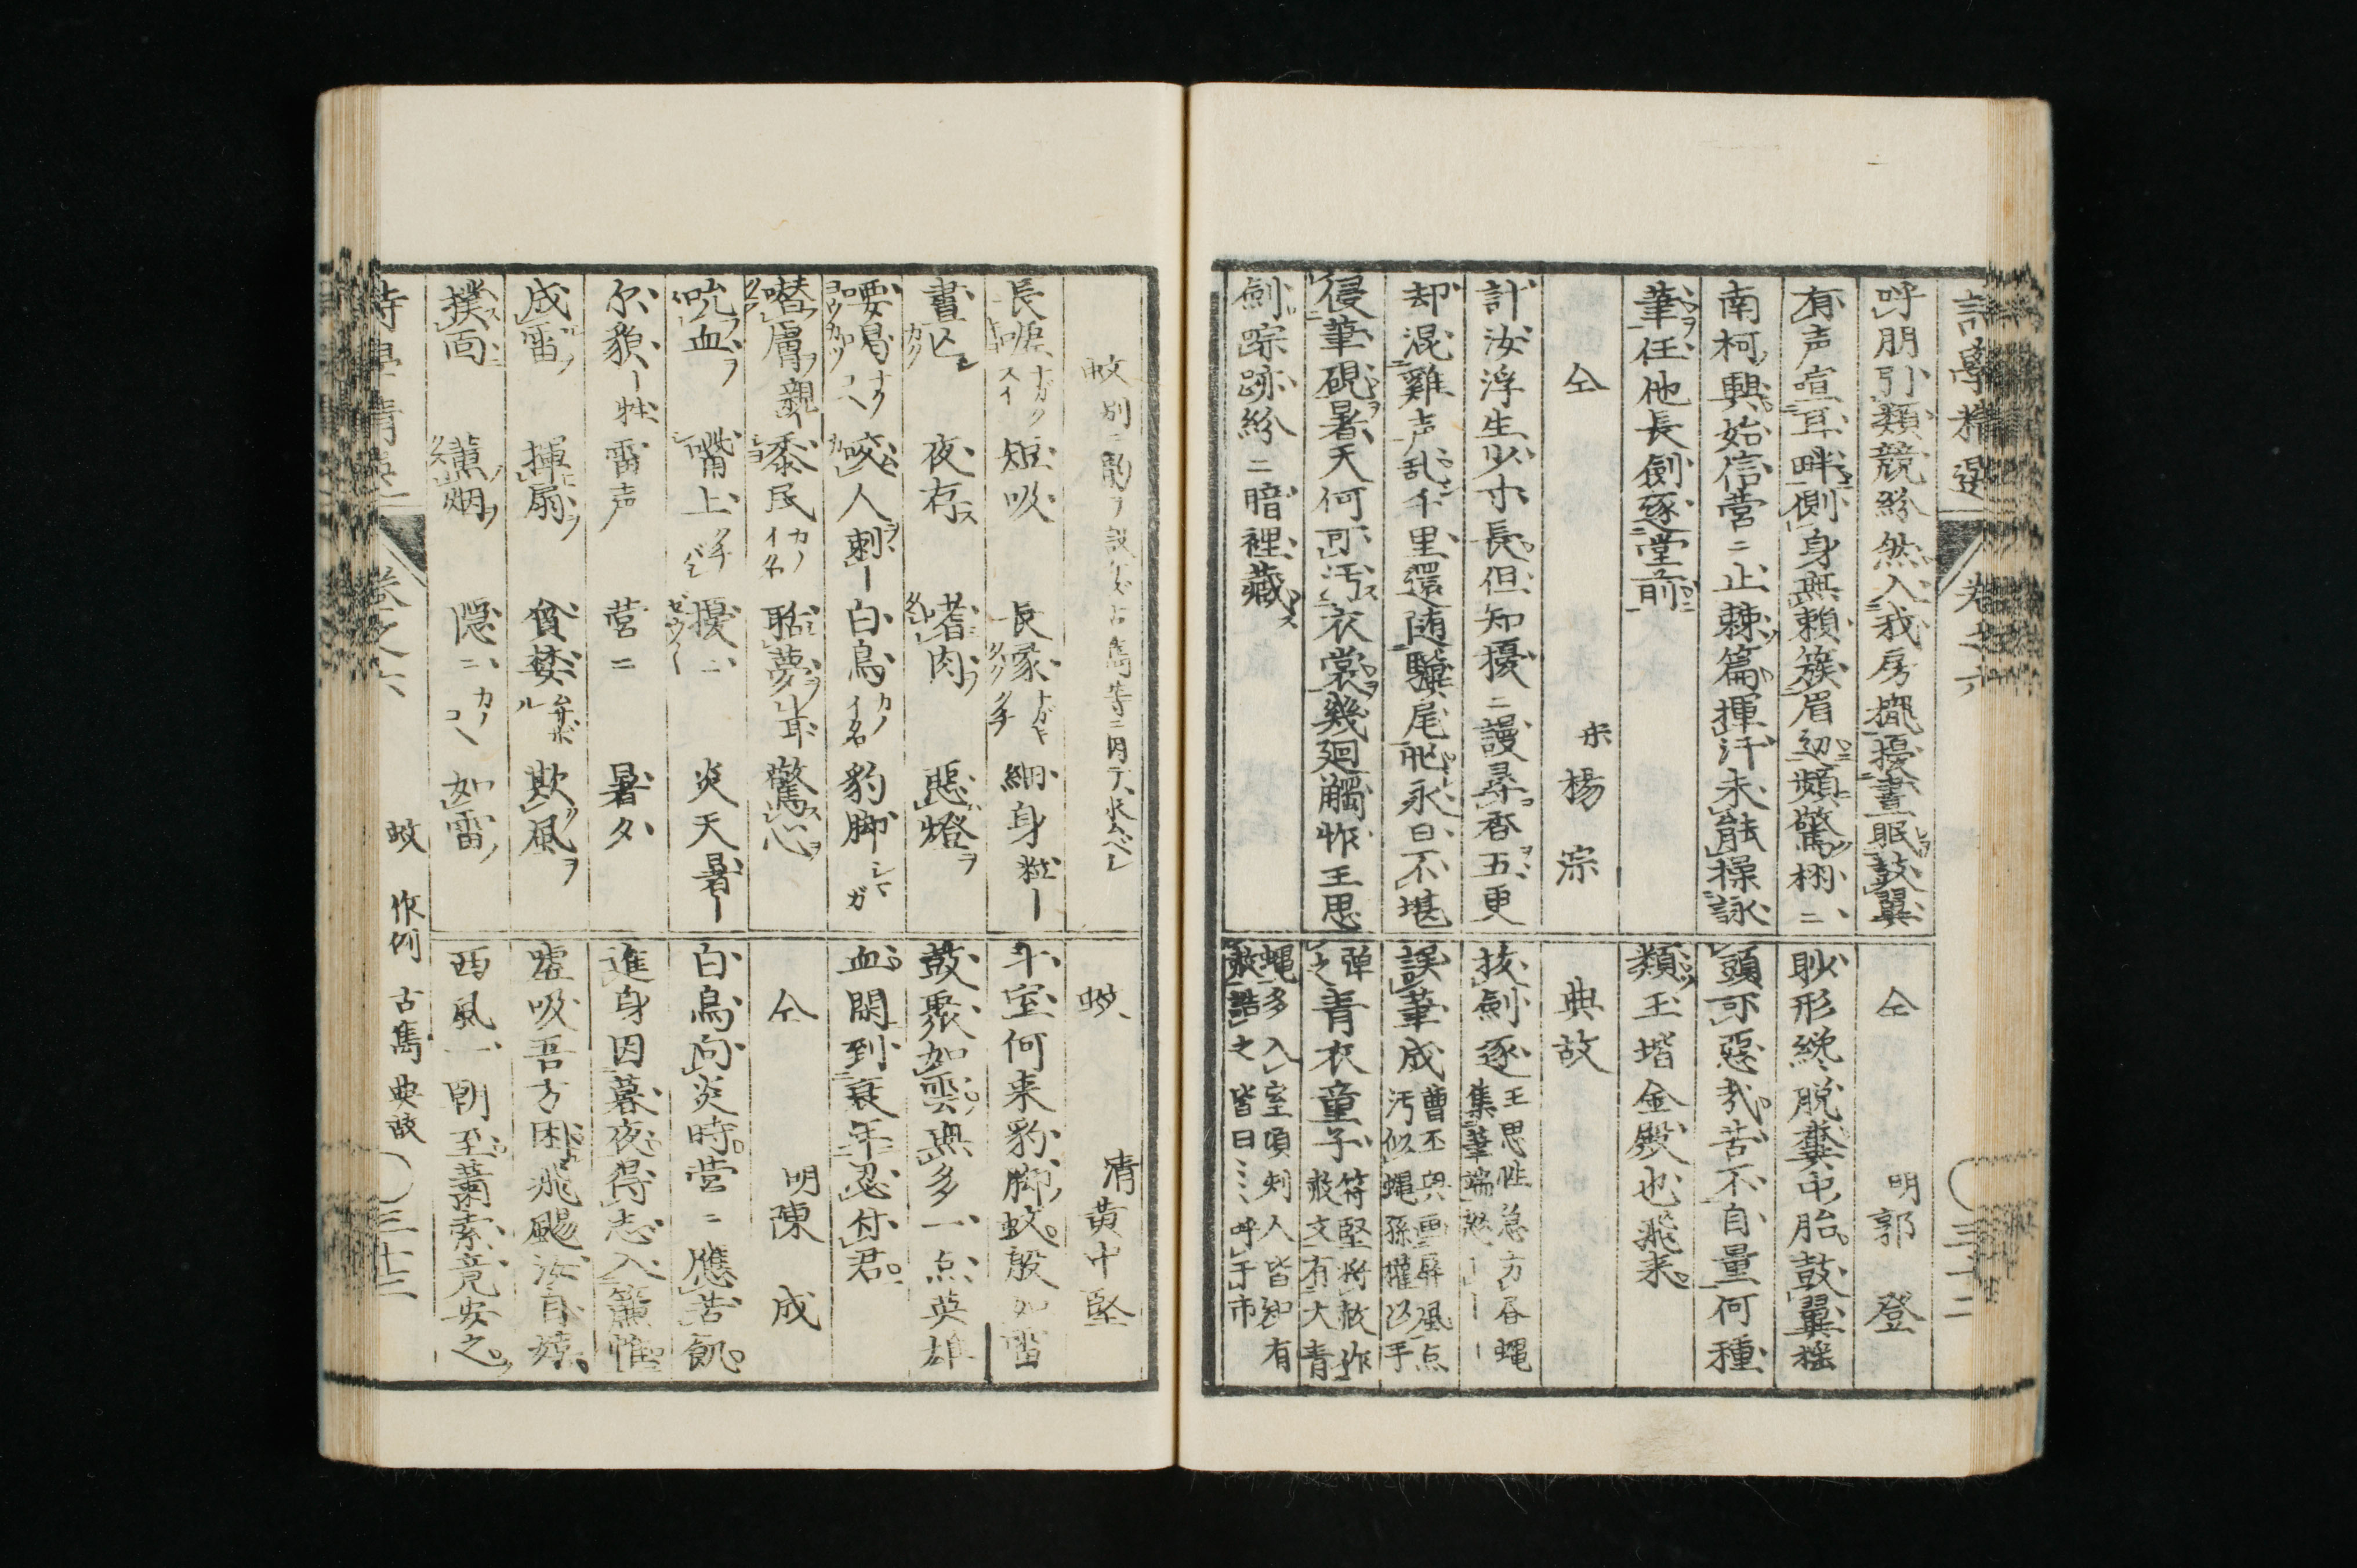 詩學精選 卷之六 三十二
呼朋引類競紛然入我房櫳擾晝眠鼓翼
有声喧耳畔側身無賴簇眉辺頻驚栩〻
南柯興始信営〻止棘篇揮汗未能操詠
筆任他長劍逐堂前
仝 宋楊淙
計汝浮生少寸長但知擾〻謾尋香五更
却混雞声乱千里還随驥尾
永日不堪
侵筆硯暑天何可汚衣裳幾廻觸忤王思
劍踪跡紛〻暗裡藏
仝 明郭登
眇形纔脱糞中胎鼓翼搖
頭可惡哉苦不自量何種
類玉堦金殿也飛来
典故
抜劍逐 王思性急方
集筆端
誤筆成 曹丕與画屏風点
汚似蠅孫權以手
弾之 青衣童子 符堅將赦作
赦文有大青
蠅多入室頃刻人皆知有
赦詰之皆曰 呼于市
蚊
長喙 ナガク 短吹 長 ナガキ 細身
晝亡 夜存ス 嗜肉ヲ 惡燈ヲ
咬人 刺 白鳥 カノイ名 豹脚
噆膚 黍民 カノイ名 聒夢 耳 驚心ヲ
吮血ヲ 嘴上 擾〻 炎天 暑
尓貌 雷声 営〻 暑夕
成雷 揮扇ヲ 貪婪 欺風ヲ
撲面 薫烟 隠〻 如雷
蚊 清黄中堅
斗室何来豹脚蚊殷如雷
鼓聚如雲與多一点英雄
血閒到衰年忍付君
仝 明陳成
白鳥向炎時営〻應苦飢
進身因暮夜得志入簾帷
噓吸吾方困飛颺汝自嬉
西風一朝至蕭索竟安之
卷之六 蚊 作例 古雋 典故 三十三